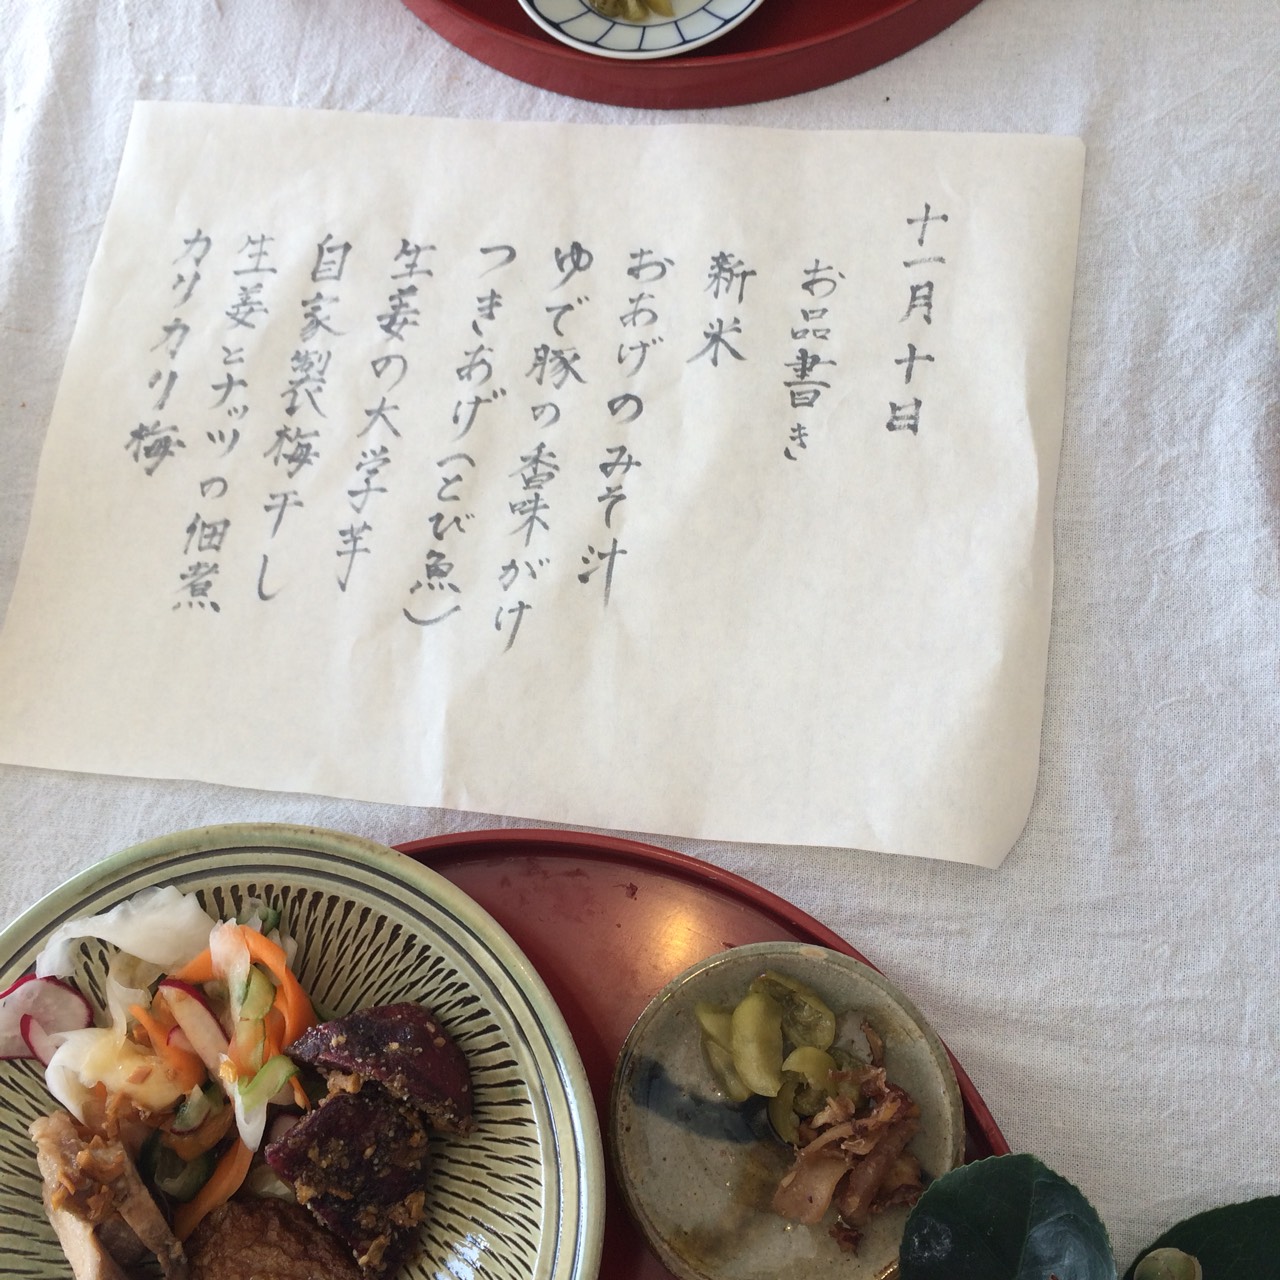 十一月十日
お品書き
新米
おあげのみそ汁
ゆで豚の香味がけ
つきあげ(とび魚)
生姜の大学芋
自家製梅干し
生姜とナッツの佃煮
カリカリ梅